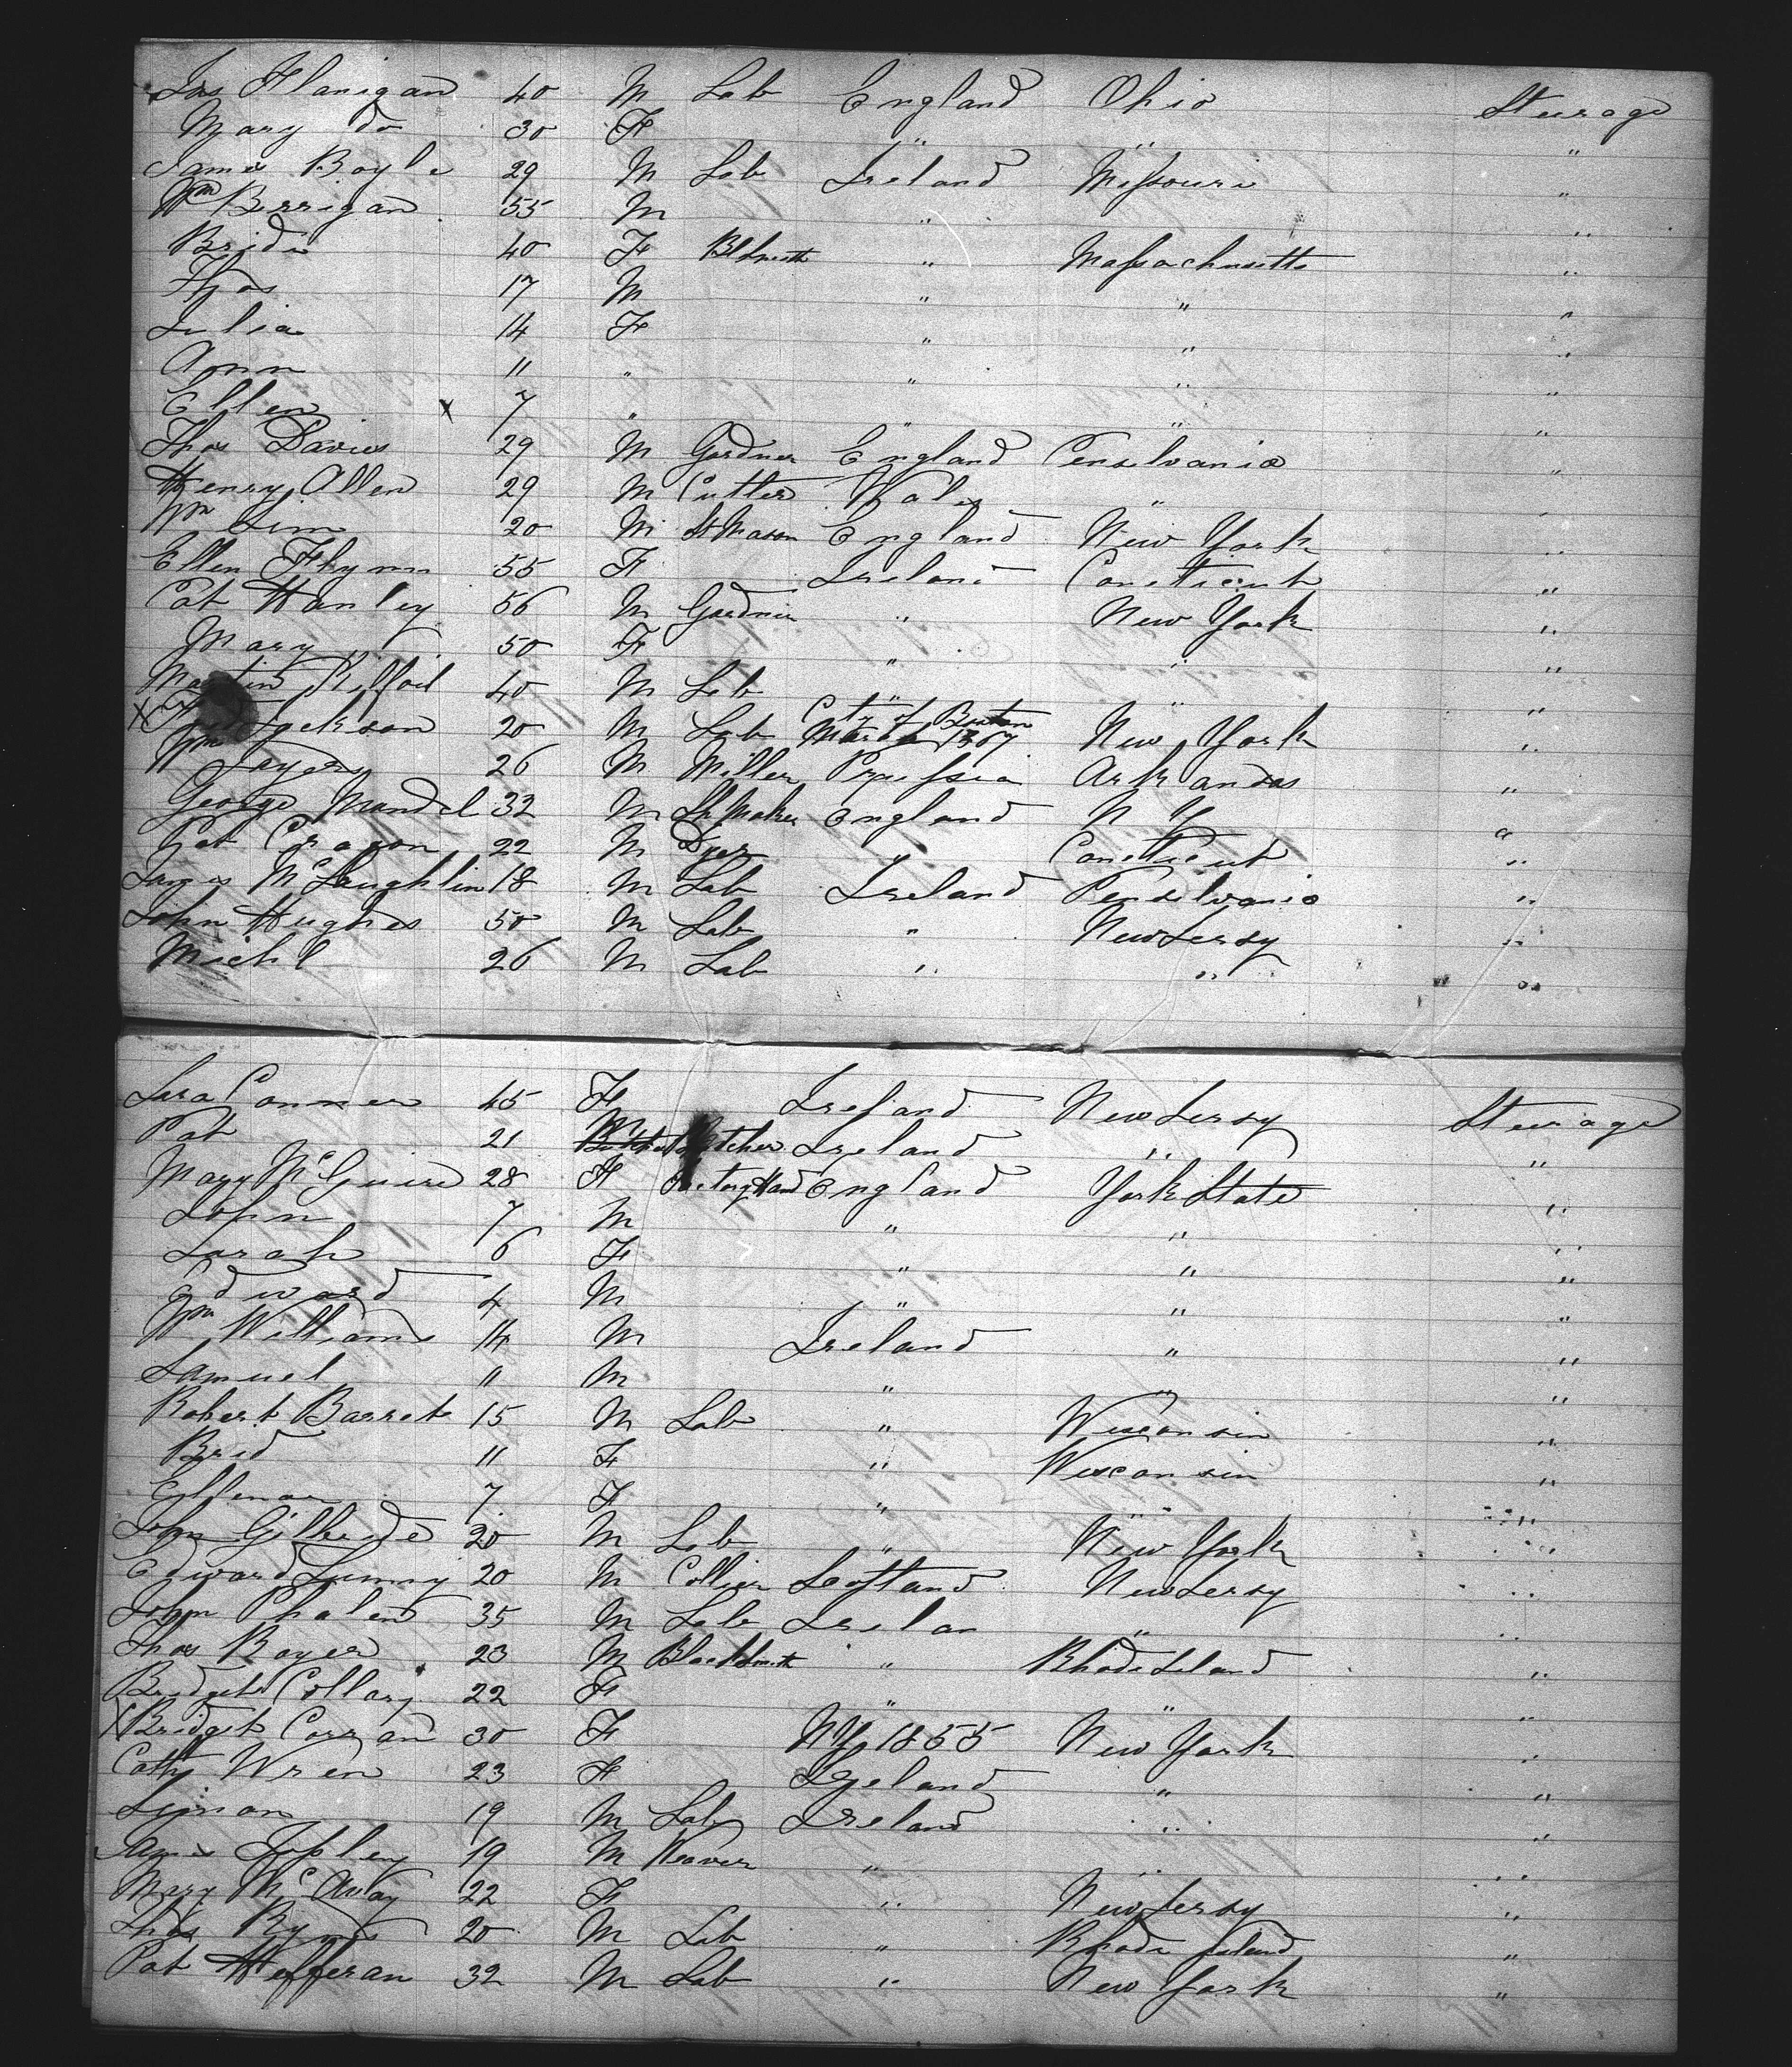 Jas Flanigan 40 M Lab England Ohio Steerage
Mary do 30 F " " "
James Boyle 29 M Lab Ireland Missouri "
Wm Berrigan 55 M " "
Brid 40 F Blksmith " Massachusetts "
Thos 17 M " " "
Julia 14 F " " "
Ann 11 " " " "
Ellen x 7 " " " "
Thos Davies 29 M Gardner England Pensilvania "
Henry Allen 29 M Cutler Wales " "
Wm Sim 20 M St Mason England New York "
Ellen Flynn 55 F Ireland Coneticut "
Pat Hanley 56 M Gardner " New York "
Mary 50 F " " "
Martin Kilfoil 40 M Lab " " "
x Jackson 20 M Lab City of Boston March 1867 New York "
Wm Sayers 26 M Miller Prussia Arkansas "
George Mandel 32 M Sh Maker England N Y "
Pat Cragon 22 M Dyer Coneticut "
James McLaughlin 18 M Lab Ireland Pensilvania "
John Hughes 50 M Lab " New Jersy "
Michl 26 M Lab " " "
Sara Conner 45 F Ireland New Jersy Steerage
Pat 21 M Butcher Ireland " "
Mary McGuire 28 F Factory Hand England York State "
John 7 M " " "
Sarah 6 F " " "
Edward 4 M " " "
Wm Williams 14 M Ireland " "
Samuel 11 M " " "
Robert Barret 15 M Lab " Wisconsin "
Brid 11 F " Wisconsin "
Ellenor 7 F " " "
John Gilbride 20 M Lab " New York "
Edward Lunny 20 M Collier Scotland New Jersy "
John Phalen 35 M Lab Irelan " "
Thos Boyer 23 M Blacksmith " Rhode Island "
Bridget Collary 22 F " " "
x Bridget Corran 30 F NY 1855 New York "
Cath Wren 23 F Ireland " "
Simon 19 M Lab Ireland " "
James Topley 19 M Weaver " " "
Mary McAvay 22 F " New Jersy "
Thos Byrns 20 M Lab " Rhode Island "
Pat Hefferan 32 M Lab " New York "